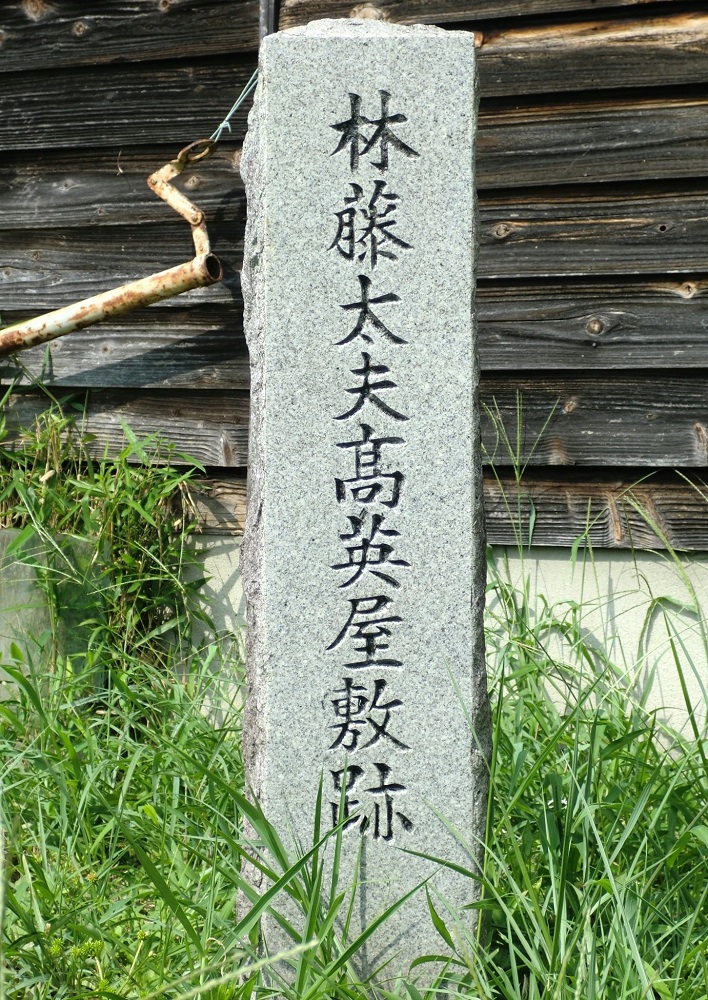 林藤太夫髙英屋敷跡